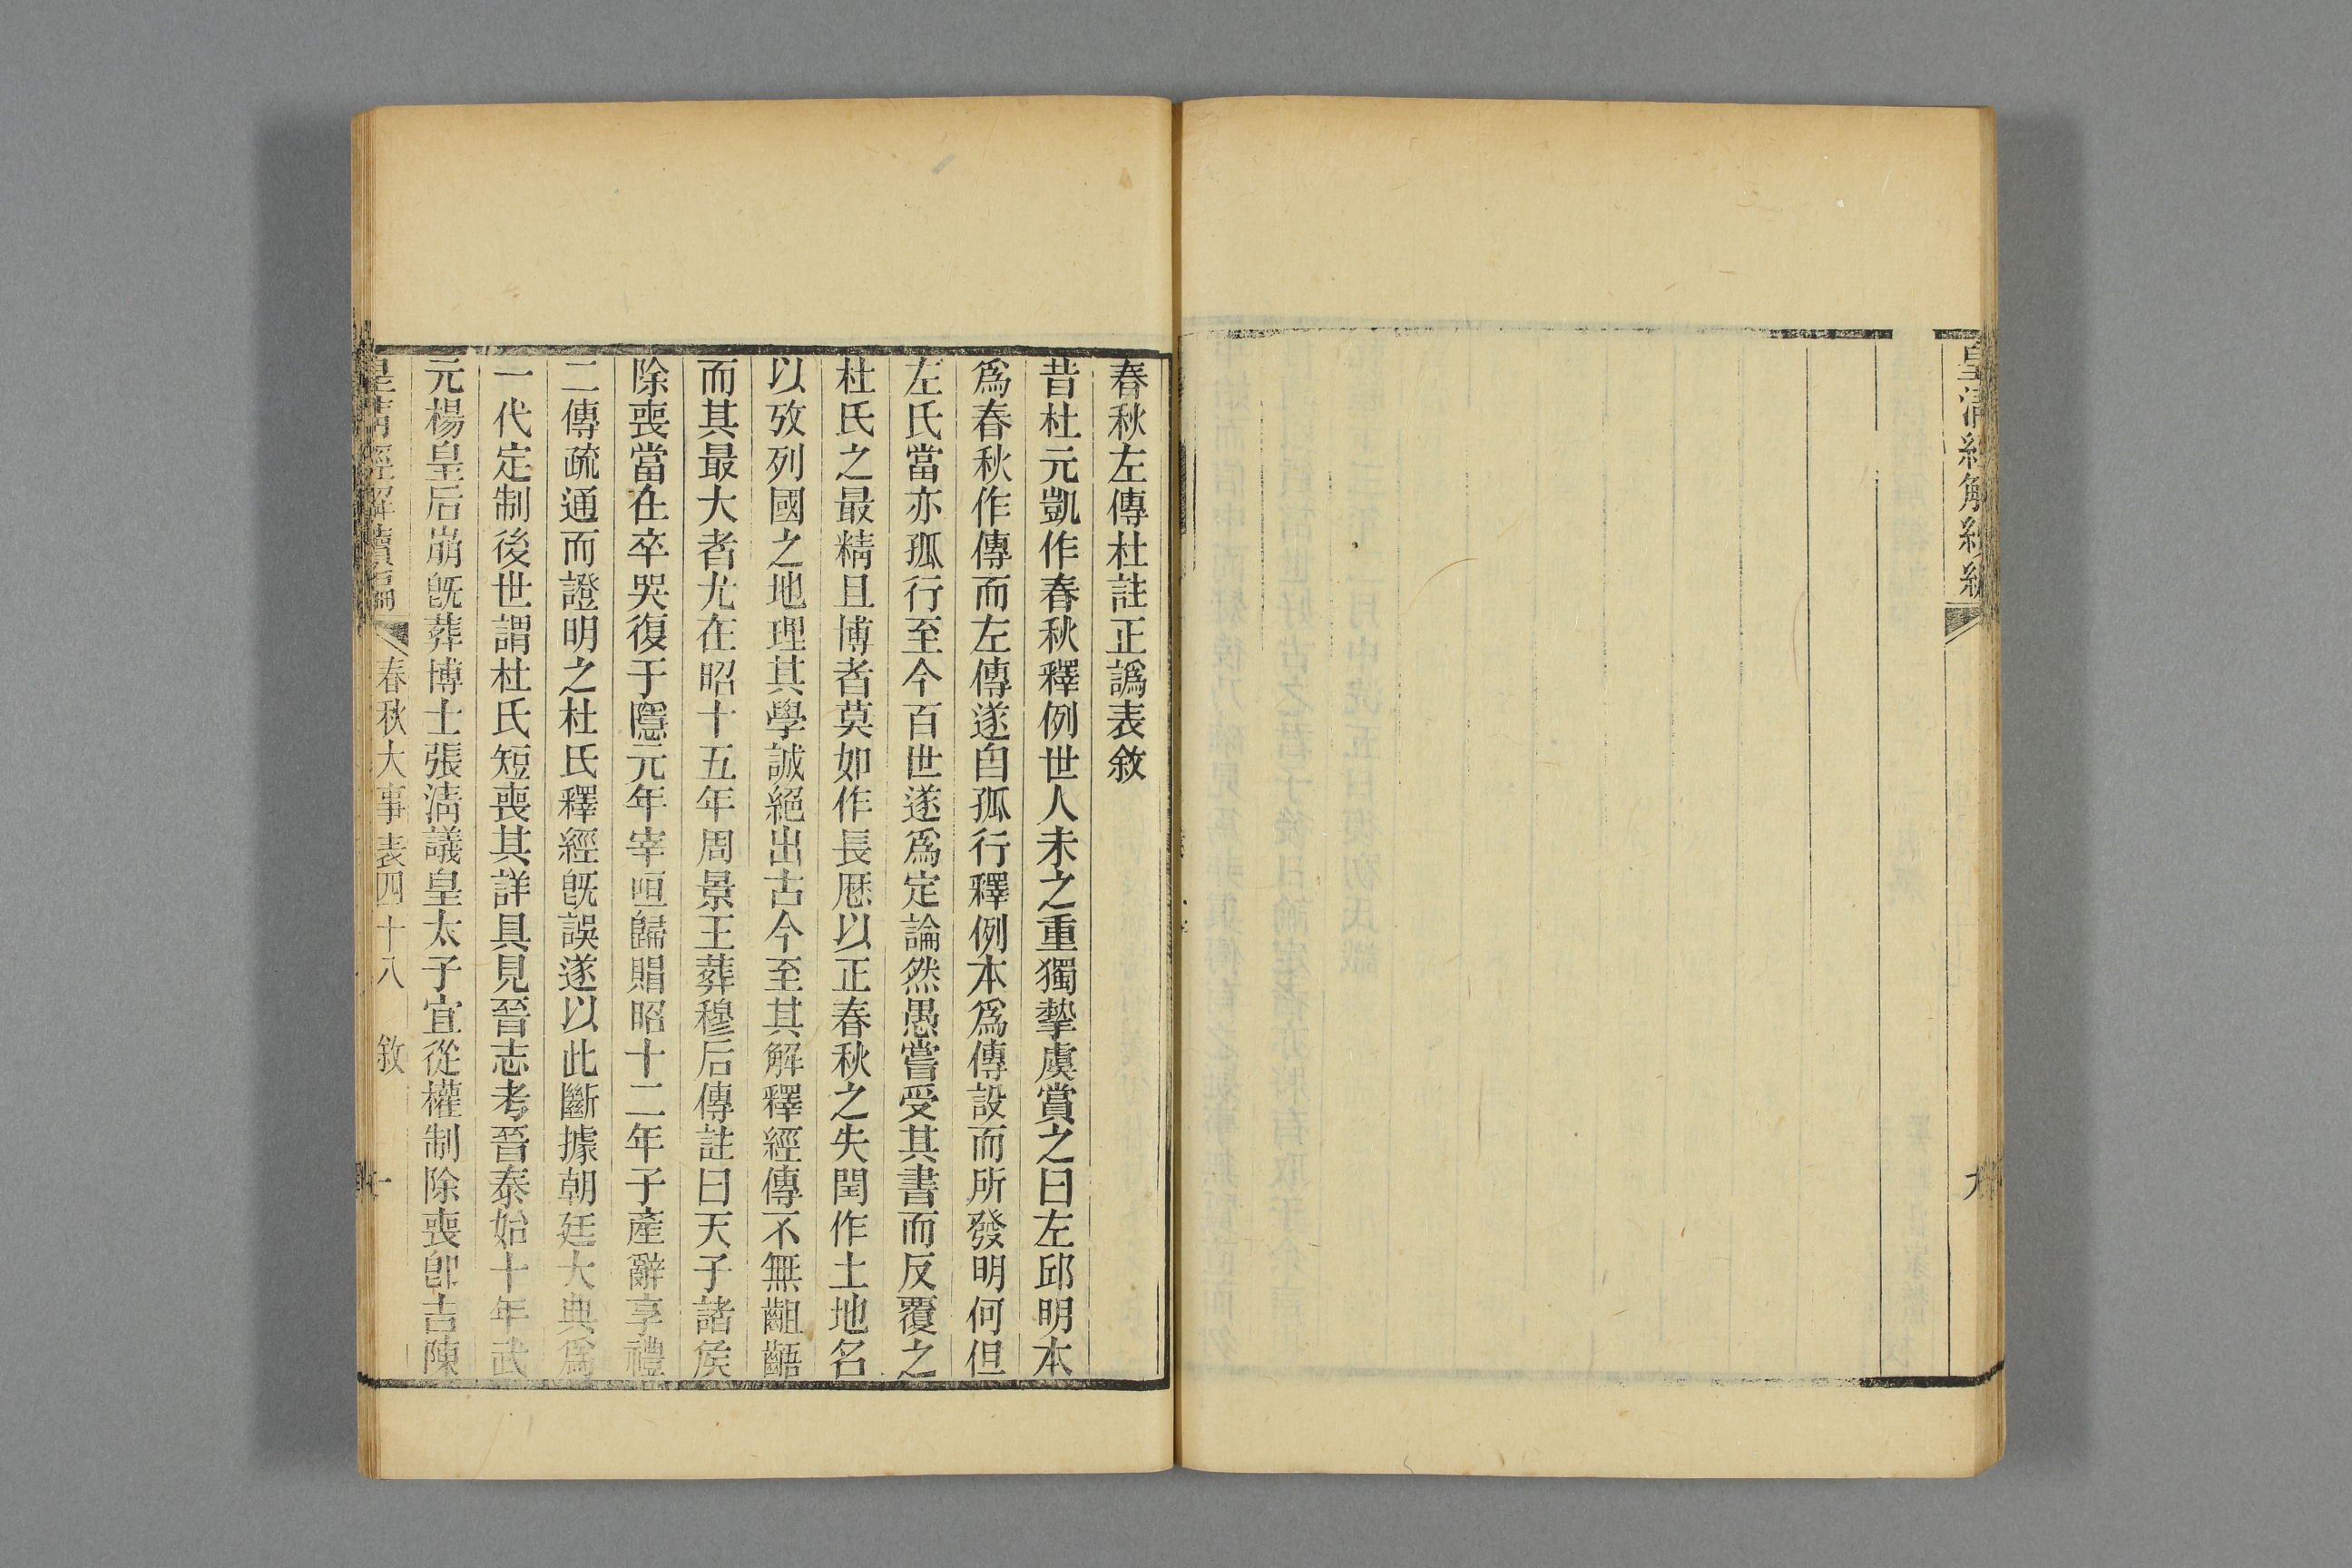 皇清經解續編
九
春秋左傳杜註正譌表敘
昔杜元凱作春秋釋例世人未之重獨摯虞賞之曰左邱明本
爲春秋作傳而左傳遂自孤行釋例本爲傳設而所發明何但
左氏當亦孤行至今百世遂爲定論然愚嘗受其書而反覆之
杜氏之最精且博者莫如作長厯以正春秋之失閏作土地名
以攷列國之地理其學誠絕出古今至其解釋經傳不無齟齬
而其最大者尤在昭十五年周景王葬穆后傳註曰天子諸矦
除喪當在卒哭復于隱元年宰咺歸賵昭十二年子產辭享禮
二傳疏通而證明之杜氏釋經旣誤遂以此斷據朝廷大典爲
一代定制後世謂杜氏短喪其詳具見晉志考晉泰始十年武
元楊皇后崩旣葬博士張淸議皇太子宜從權制除喪卽吉陳
皇清經解續編 春秋大事表四十八 敘 一